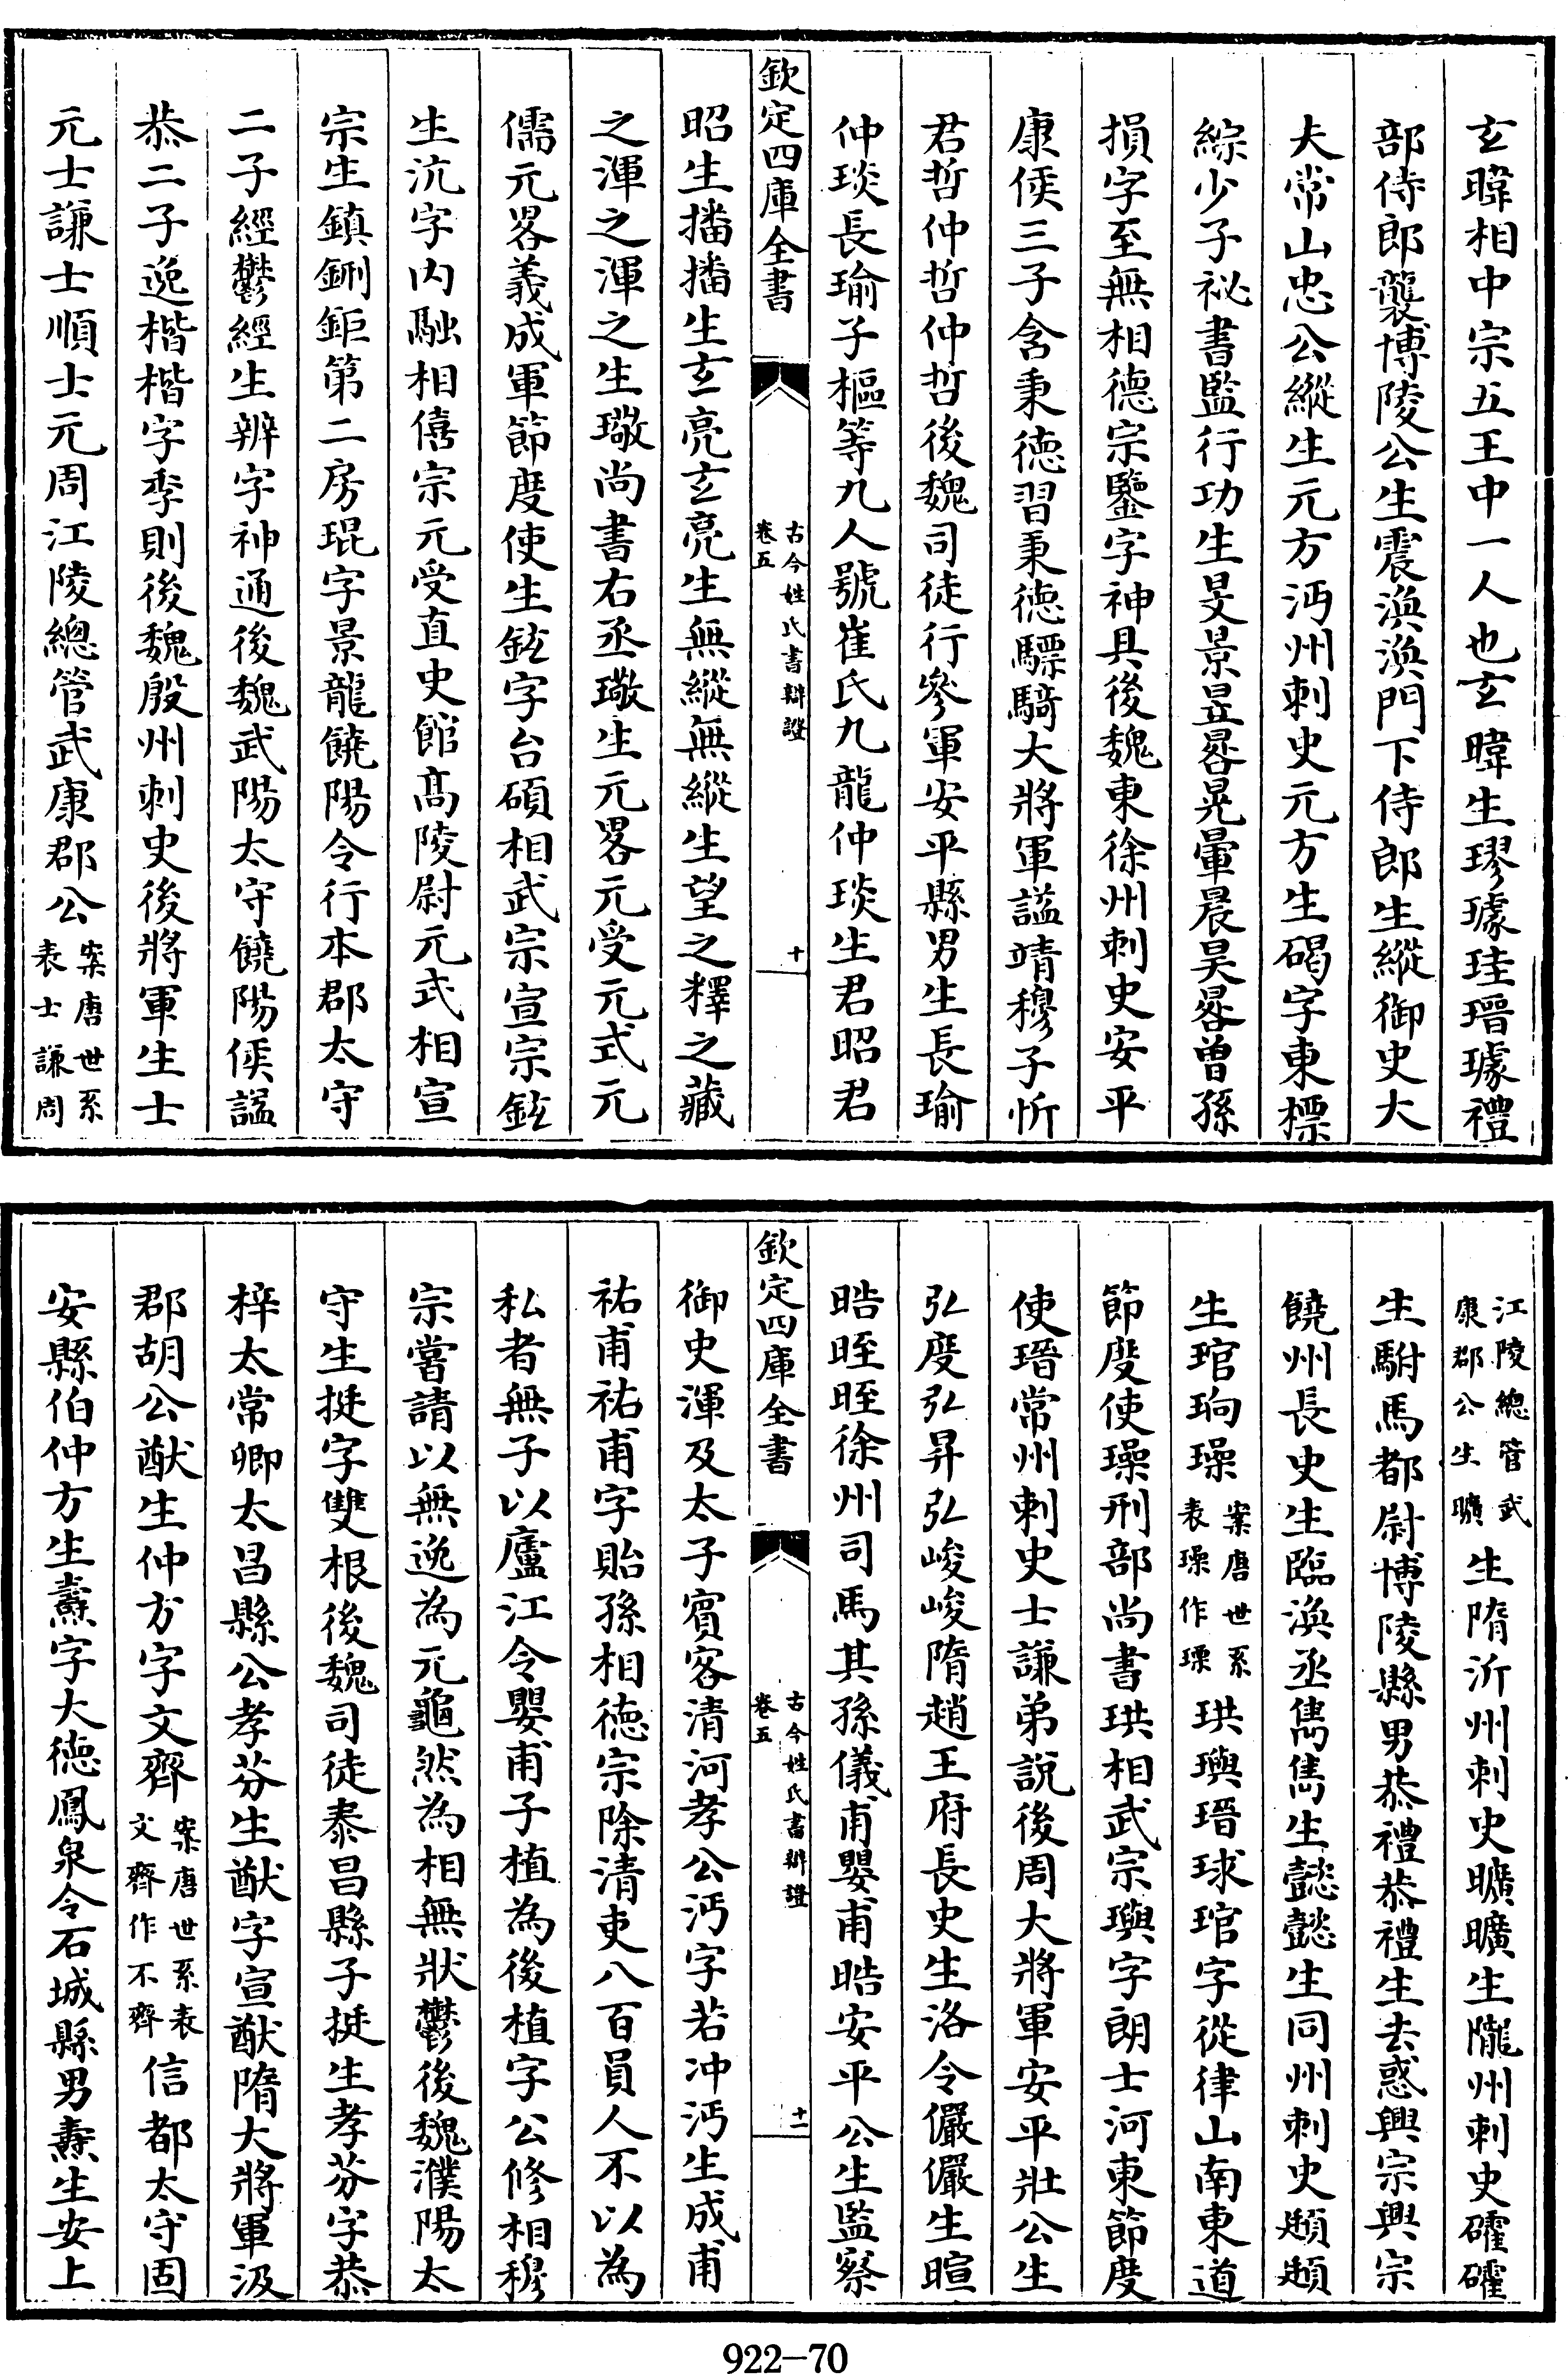 玄暐相中宗五王中一人也玄暐生璆璩珪瑨璩禮
部侍郎襲博陵公生震渙渙門下侍郎生縱御史大
夫常山忠公縱生元方沔州刺史元方生碣字東標
綜少子祕書監行功生旻景昱晷晃暈晨昊晷曾孫
損字至無相德宗鑒字神具後魏東徐州刺史安平
康侯三子含秉德習秉德驃騎大將軍謚靖穆子忻
君哲仲哲仲哲後魏司徒行參軍安平縣男生長瑜
仲琰長瑜子樞等九人號崔氏九龍仲琰生君昭君
欽定四庫全書
古今姓氏書辯證
卷五
十
昭生播播生玄亮玄亮生無縱無縱生望之釋之藏
之渾之渾之生璥尚書右丞璥生元畧元受元式元
儒元畧義成軍節度使生鉉字台碩相武宗宣宗鉉
生沆字内融相僖宗元受直史館髙陵尉元式相宣
宗生鎮鉶鉅第二房琨字景龍饒陽令行本郡太守
二子經鬱經生辨字神通後魏武陽太守饒陽侯謚
恭二子逸楷楷字季則後魏殷州刺史後將軍生士
元士謙士順士元周江陵總管武康郡公案唐世系
表士謙周
江陵總管武
康郡公生曠生隋沂州刺史曠曠生隴州刺史礭礭
生駙馬都尉博陵縣男恭禮恭禮生去惑興宗興宗
饒州長史生臨渙丞雋雋生懿懿生同州刺史頲頲
生琯珦璪案唐世系
表璪作璖珙璵瑨球琯字從律山南東道
節度使璪刑部尚書珙相武宗璵字朗士河東節度
使瑨常州刺史士謙弟說後周大將軍安平壯公生
弘度弘昇弘峻峻隋趙王府長史生洛令儼儼生暄
晧晊晊徐州司馬其孫儀甫嬰甫晧安平公生監察
欽定四庫全書
古今姓氏書辯證
卷五
十一
御史渾及太子賓客清河孝公沔字若冲沔生成甫
祐甫祐甫字貽孫相德宗除清吏八百員人不以為
私者無子以廬江令嬰甫子植為後植字公修相穆
宗嘗請以無逸為元龜然為相無狀鬱後魏濮陽太
守生挺字雙根後魏司徒泰昌縣子挺生孝芬字恭
梓太常卿太昌縣公孝芬生猷字宣猷隋大將軍汲
郡胡公猷生仲方字文齊案唐世系表
文齊作不齊信都太守固
安縣伯仲方生燾字大德鳳泉令石城縣男燾生安上
922—70